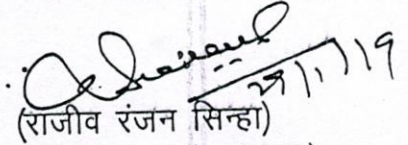 29/1/19
(राजीव रंजन सिन्हा)